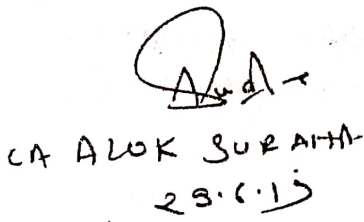 CA ALOK SURAHA
29.6.15